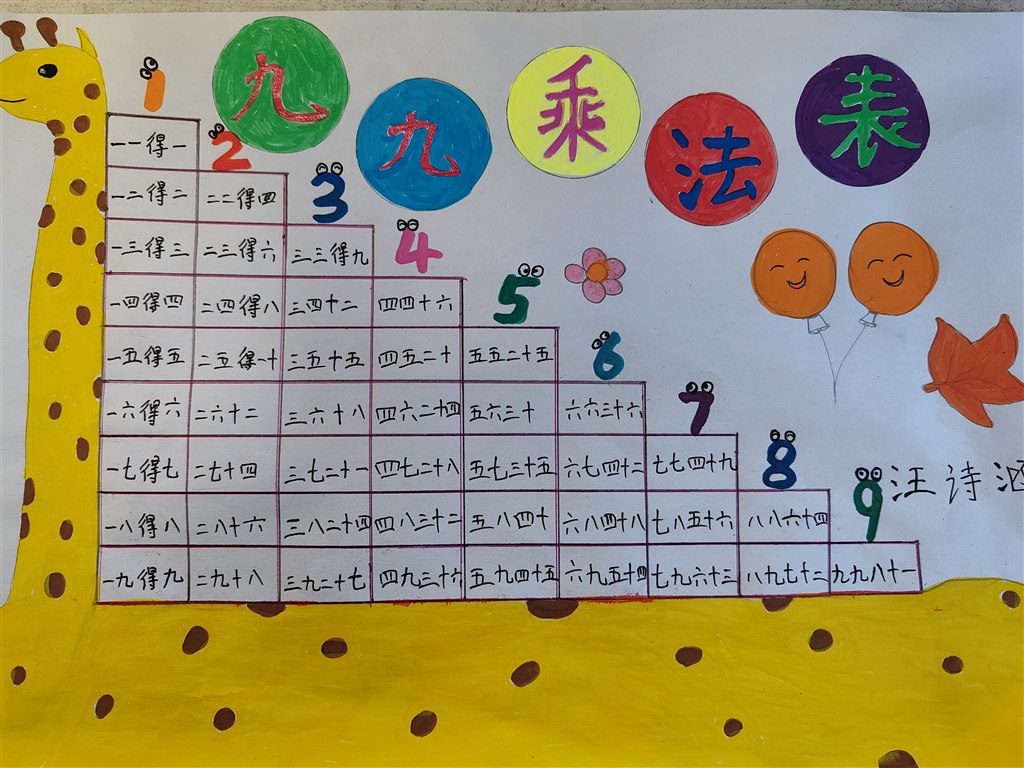 九九乘法表
1 2 3 4 5 6 7 8 9
一一得一
一二得二 二二得四
一三得三 二三得六 三三得九
一四得四 二四得八 三四十二 四四十六
一五得五 二五得一十 三五十五 四五二十 五五二十五
一六得六 二六十二 三六十八 四六二十四 五六三十 六六三十六
一七得七 二七十四 三七二十一 四七二十八 五七三十五 六七四十二 七七四十九
一八得八 二八十六 三八二十四 四八三十二 五八四十 六八四十八 七八五十六 八八六十四
一九得九 二九十八 三九二十七 四九三十六 五九四十五 六九五十四 七九六十三 八九七十二 九九八十一
汪诗涵